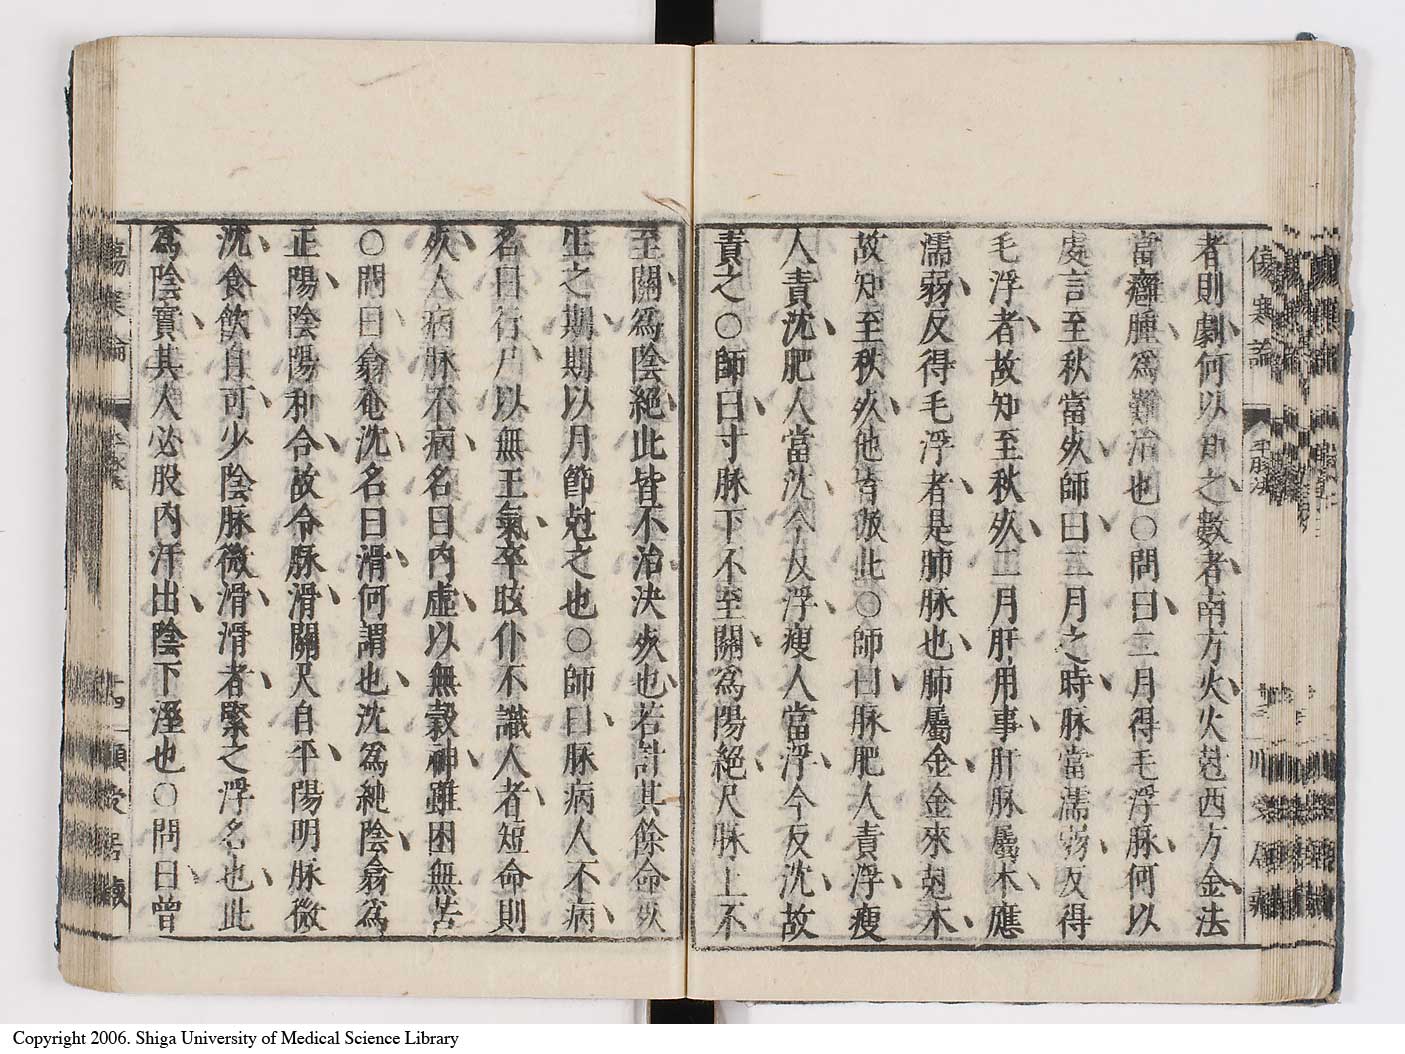 者則劇何以知之數者南方火火尅西方金法
當癰腫爲難治也〇問曰二月得毛浮脉何以
處言至秋當死師曰二月之時脉當濡弱反得
毛浮者故知至秋死二月肝用事肝脉屬木應
濡弱反得毛浮者是肺脉也肺屬金金來尅木
故知至秋死他皆倣此〇師曰脉肥人責浮瘦
人責沈肥人當沈今反浮瘦人當浮今反沈故
責之〇師曰寸脉下不至關爲陽絕尺脉上不
至關爲陰絕此皆不治決死也若計其餘命死
生之期期以月節尅之也〇師曰脉病人不病
名曰行尸以無王氣卒眩仆不識人者短命則
死人病脉不病名曰內虛以無穀神雖困無苦
〇問曰翕奄沈名曰滑何謂也沈爲純陰翕爲
正陽陰陽和合故令脉滑關尺自平陽明脉微
沈食飮自可少陰脉微滑滑者緊之浮名也此
爲陰實其人必股內汗出陰下溼也〇問曰曾
傷寒論
平脉法
Copyright 2006. Shiga University of Medical Science Library